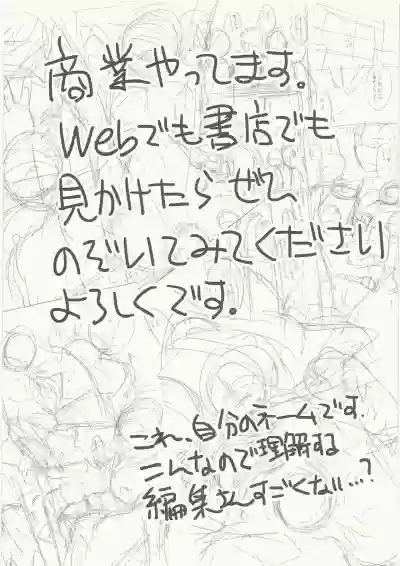 商業やってます。
Webでも書店でも
見かけたら ぜひ
のぞいてみてください
よろしくです。
これ、自分のネームです。
こんなので理解する
編集さんすごくない…?